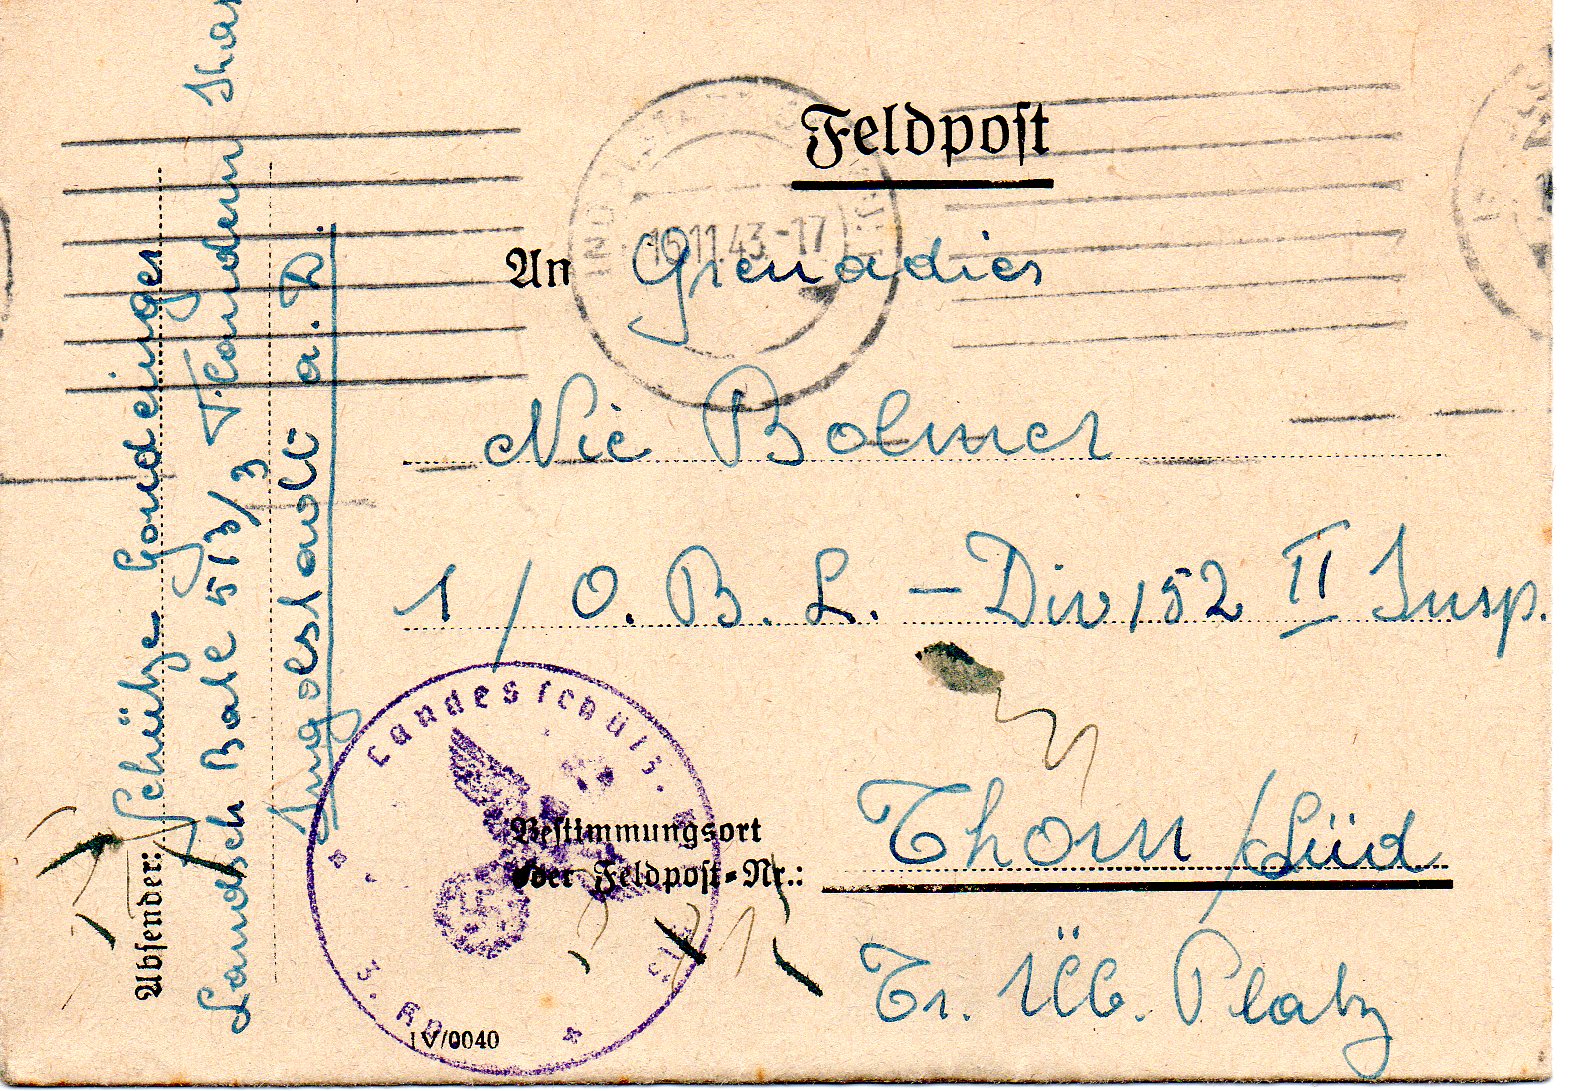 Feldpost
16.11.43.-17
An Grenadier
Nic Bolmer
1/O.B.L. - Div 152 II Insp.
Bestimmungsort
oder Feldpost-Nr.:
Thorn/Süd
Tr. Üb. Platz
Absender: Schütze Gondeinger
Landessch Batl 513/3 Flandern
Ingolstadt a. D.
Landesschütz.
3. Kp
IV/0040